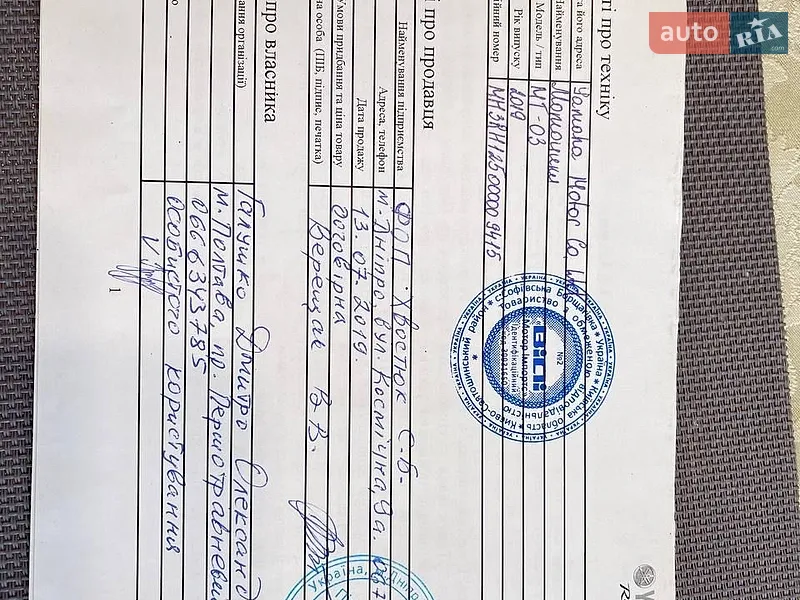 ті про техніку
та його адреса Yamaha Motor Co, Ltd
Найменування Мотоцикл
Модель / тип МТ-03
Рік випуску 2019
ійний номер MH3RH1250000 9415
і про продавця
Найменування підприємства ФОП Хвостюк С-Б-
Адреса, телефон м. Дніпро вул. Космічна, 9а. 067
Дата продажу 13.07.2019.
Умови придбання та ціна товару договірна
на особа (ПІБ, підпис, печатка) Верещак В.В.
про власника
вання організації) Галушко Дмитро Олександ
м. Полтава, пр. Першотравневий
066 6343785
особистого користування
V
1
auto RIA .com
Україна * Київська область * Києво-Святошинський район * с.Софіївська Борщагівка
Товариство з обмеженою відповідальністю
№2
«ВІДІ
Мотор Імпортс»
Ідентифікаційний
УКРАЇНА
Україна, м.Дніпро
Y